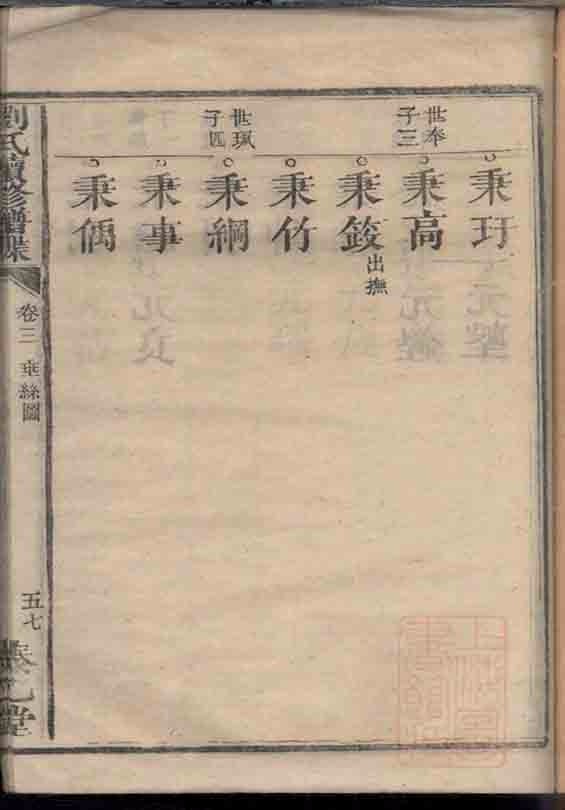 秉玗
世奉
子三
秉高
秉筬
出撫
秉竹
世珮
子四
秉綱
秉事
秉偊
劉氏續修譜牒
卷三 垂絲圖
五七